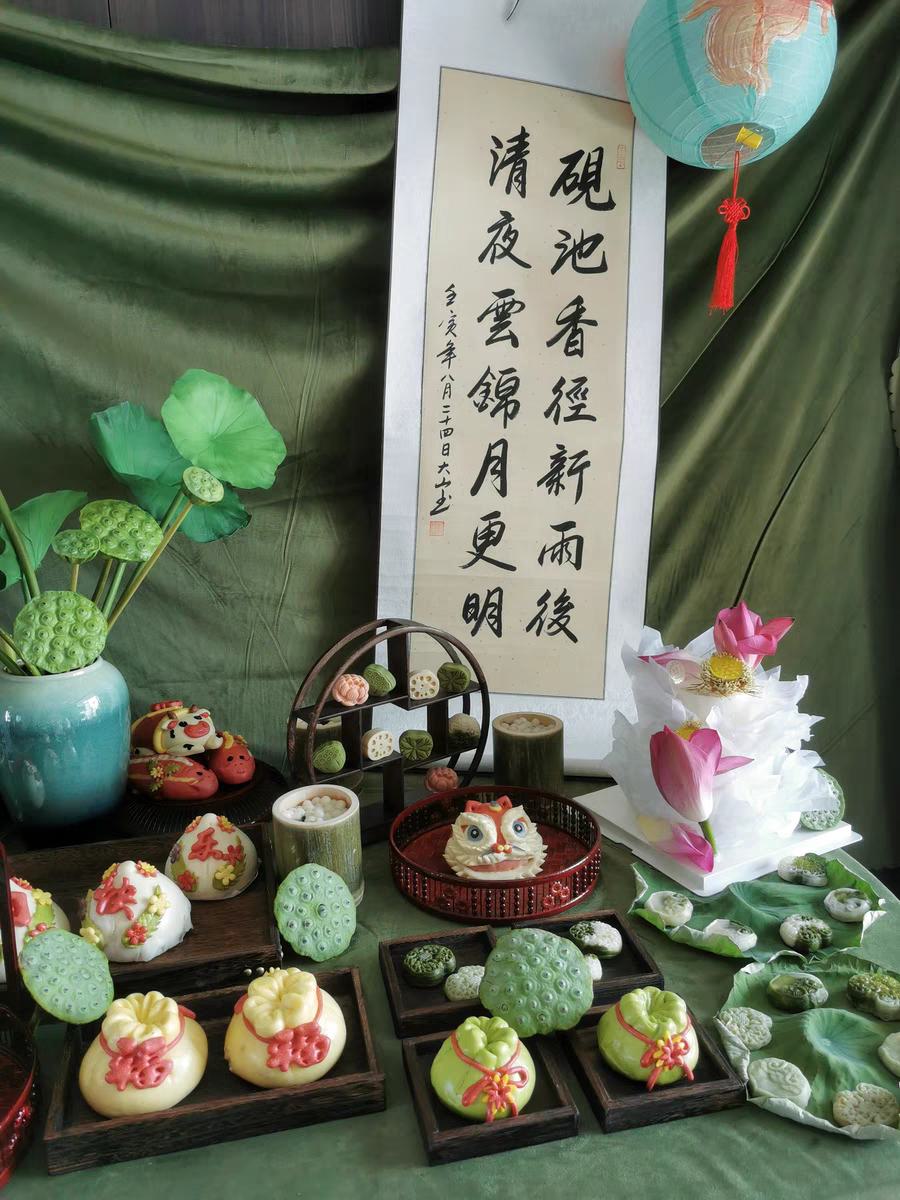 硯池香徑新雨後
清夜雲錦月更明
壬寅年八月二十四日大山书
福
福